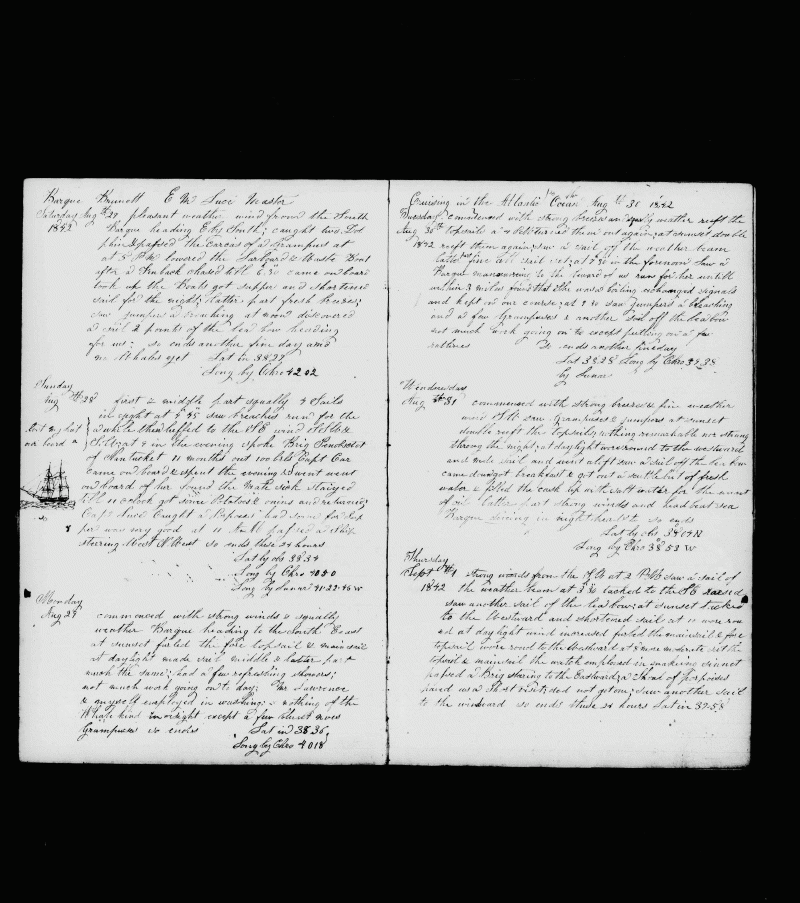 Barque Brunett E M Luce Master
Saturday Aug 27 pleasant weather wind from the South
1842 Barque heading E by South; caught two Dol
phin & passed the carcas of a Grampus at
at 5 P M lowered the Larboard & Waste Boat
after a finback chased till 6 30 came on board
took up the Boats got supper and shortened
sail for the night; latter part fresh breeze;
saw jumpers a breaching at noon discovered
a sail 2 points of the lea bow heading
for us; so ends another fine day and
no Whales yet Lat in 38 27
Long by Chro 42 02
Sunday
Aug 28 first & middle part squally & Sails
in caught at saw breaches run for the
a while then luffed to the wind
at in the evening spoke Brig Penobscot
of Nantucket 11 months out 100 bbls Capt Car
came on board & spent the evening & I went
on board of her found the Mate sick stayed
till 11 oclock got some Potatoes & onions and returned
Capt Luce caught a had some for sup
per was very good at 11 A M passed a ship
steering West N West so ends these 24 hours
Lat by obs 38 34
Long by Chro 40 50
Long by Lunar 41-22-45 W
Monday
Aug 29 commenced with strong winds & squally
weather Barque heading to the South East
at sunset furled the fore topsail & mainsail
at daylight made sail middle & latter part
much the same; had a few refreshing showers;
not much work going on to day; Mr Lawrence
& myself employed in washing; nothing of the
Whale kind in sight except a few
Grampuses so ends Lat in 38 36
Long by Chro 40 18
Cruising in the Atlantic Ocean Aug 30 1842
Tuesday commenced with strong breeze and squally weather reeft the
Aug 30th topsails at 4 turned them out again; at sunset double
1842 reeft them again; saw a sail off the weather beam
latter part fine all sail set; at 7 30 in the forenoon saw a
Barque manoevering to the leward of us run for her untill
within 3 miles found that she was a boiling exchanged signals
and kept on our course; at 9 30 saw jumpers a breaching
and a few Grampuses & another sail off the lea bow
not much work going on to except putting on a few
ratlines So ends another fine day
Lat 38 28 Long by Chro 39 38
by Lunar
Wendensday
Aug 31 commenced with strong breeze & fine weather
wind saw Grampuses & jumpers at sunset
double reeft the topsails; nothing remarkable
strong the night; at daylight wore round to the westward
and made sail and went aloft saw a sail off the lea bow
came down got breakfast & got out a of fresh
water & filled the cask up with salt water for the
of oil latter part strong winds and head beat sea
Barque diving in so ends
Lat by obs 38 04 N
Long by Chro 38 53 W
Thursday
Sept 1 strong winds from the at 2 P M saw a sail of
1842 the weather beam at 3 30 tacked to the SE
saw another sail of the lea bow; at sunset tacked
to the Westward and shortened sail at 11 wore rou
nd at daylight wind increased furled the mainsail & fore
topsail wore round to the Westward at 8 more moderate set the
topsail & mainsail the watch employed in making sinnet
passed a Brig steering to the Eastward; a Shoal of porpoises
paid us a short visit; did not get one; saw another sail
to the windward so ends these 24 hours Lat in 37-58